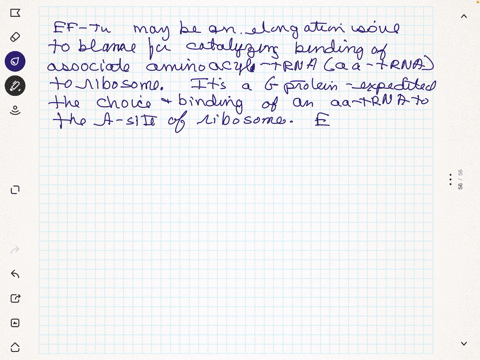 EF-Tu may be an elongation issue
to blame for catalyzing binding of
associate aminoacyl-tRNA (aa-tRNA)
to ribosome. It's a G protein-expedited
the choice + binding of an aa-tRNA to
the A-site of ribosome. E
56 / 56